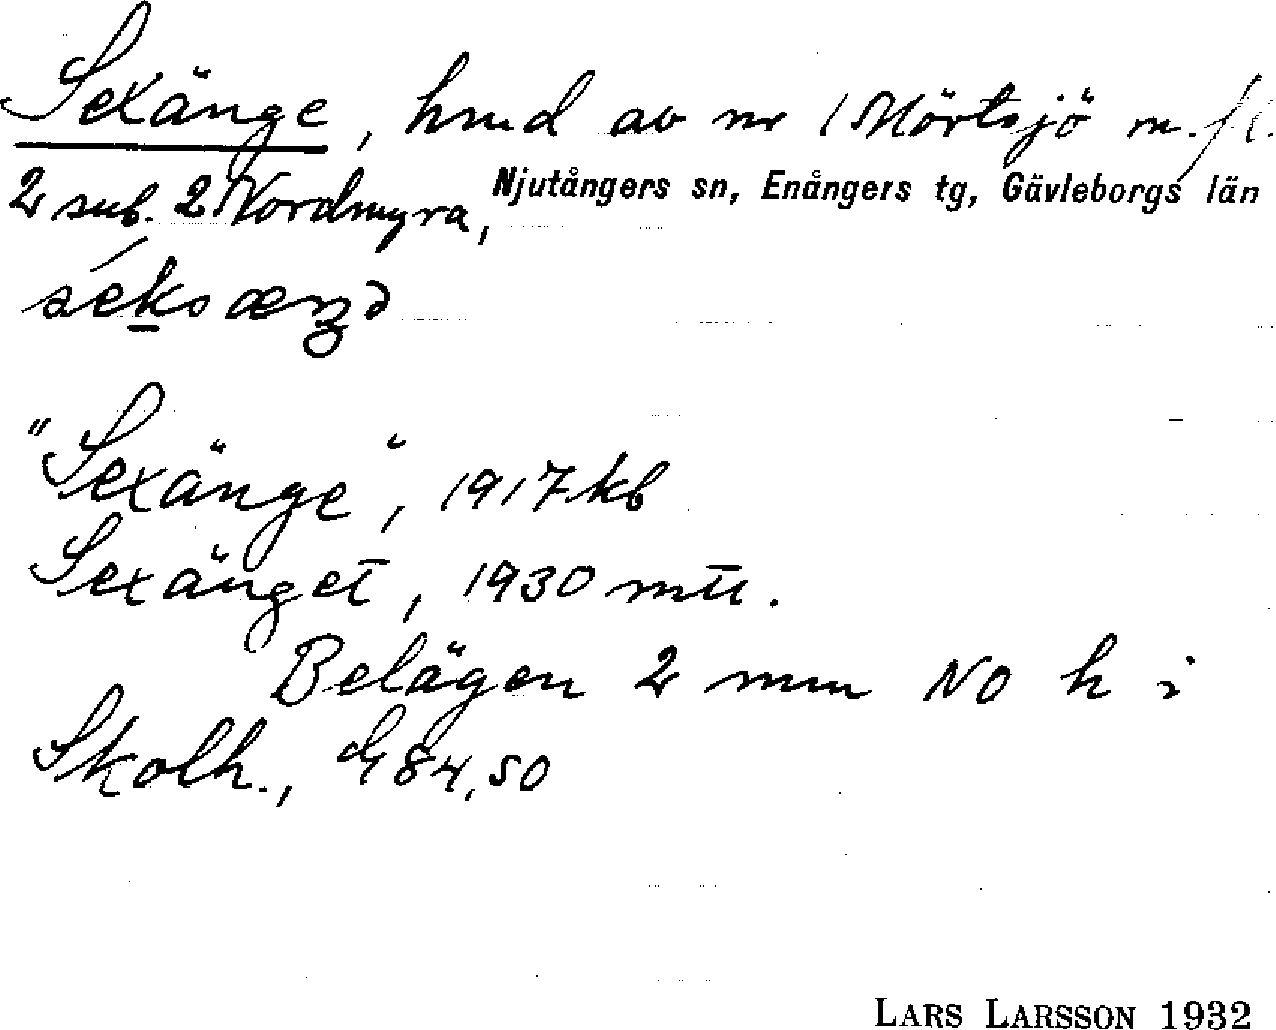 Sexänge, hmd av nr 1 Mörtsjö m.fl.
2 sub. 2 Nordmyra, Njutångers sn, Enångers tg, Gävleborgs län
séksæŋə
"Sexänge", 1917 kb
Sexänget, 1930 mtl.
Belägen 2 mm NO h i
Skolh., G 84,50
LARS LARSSON 1932